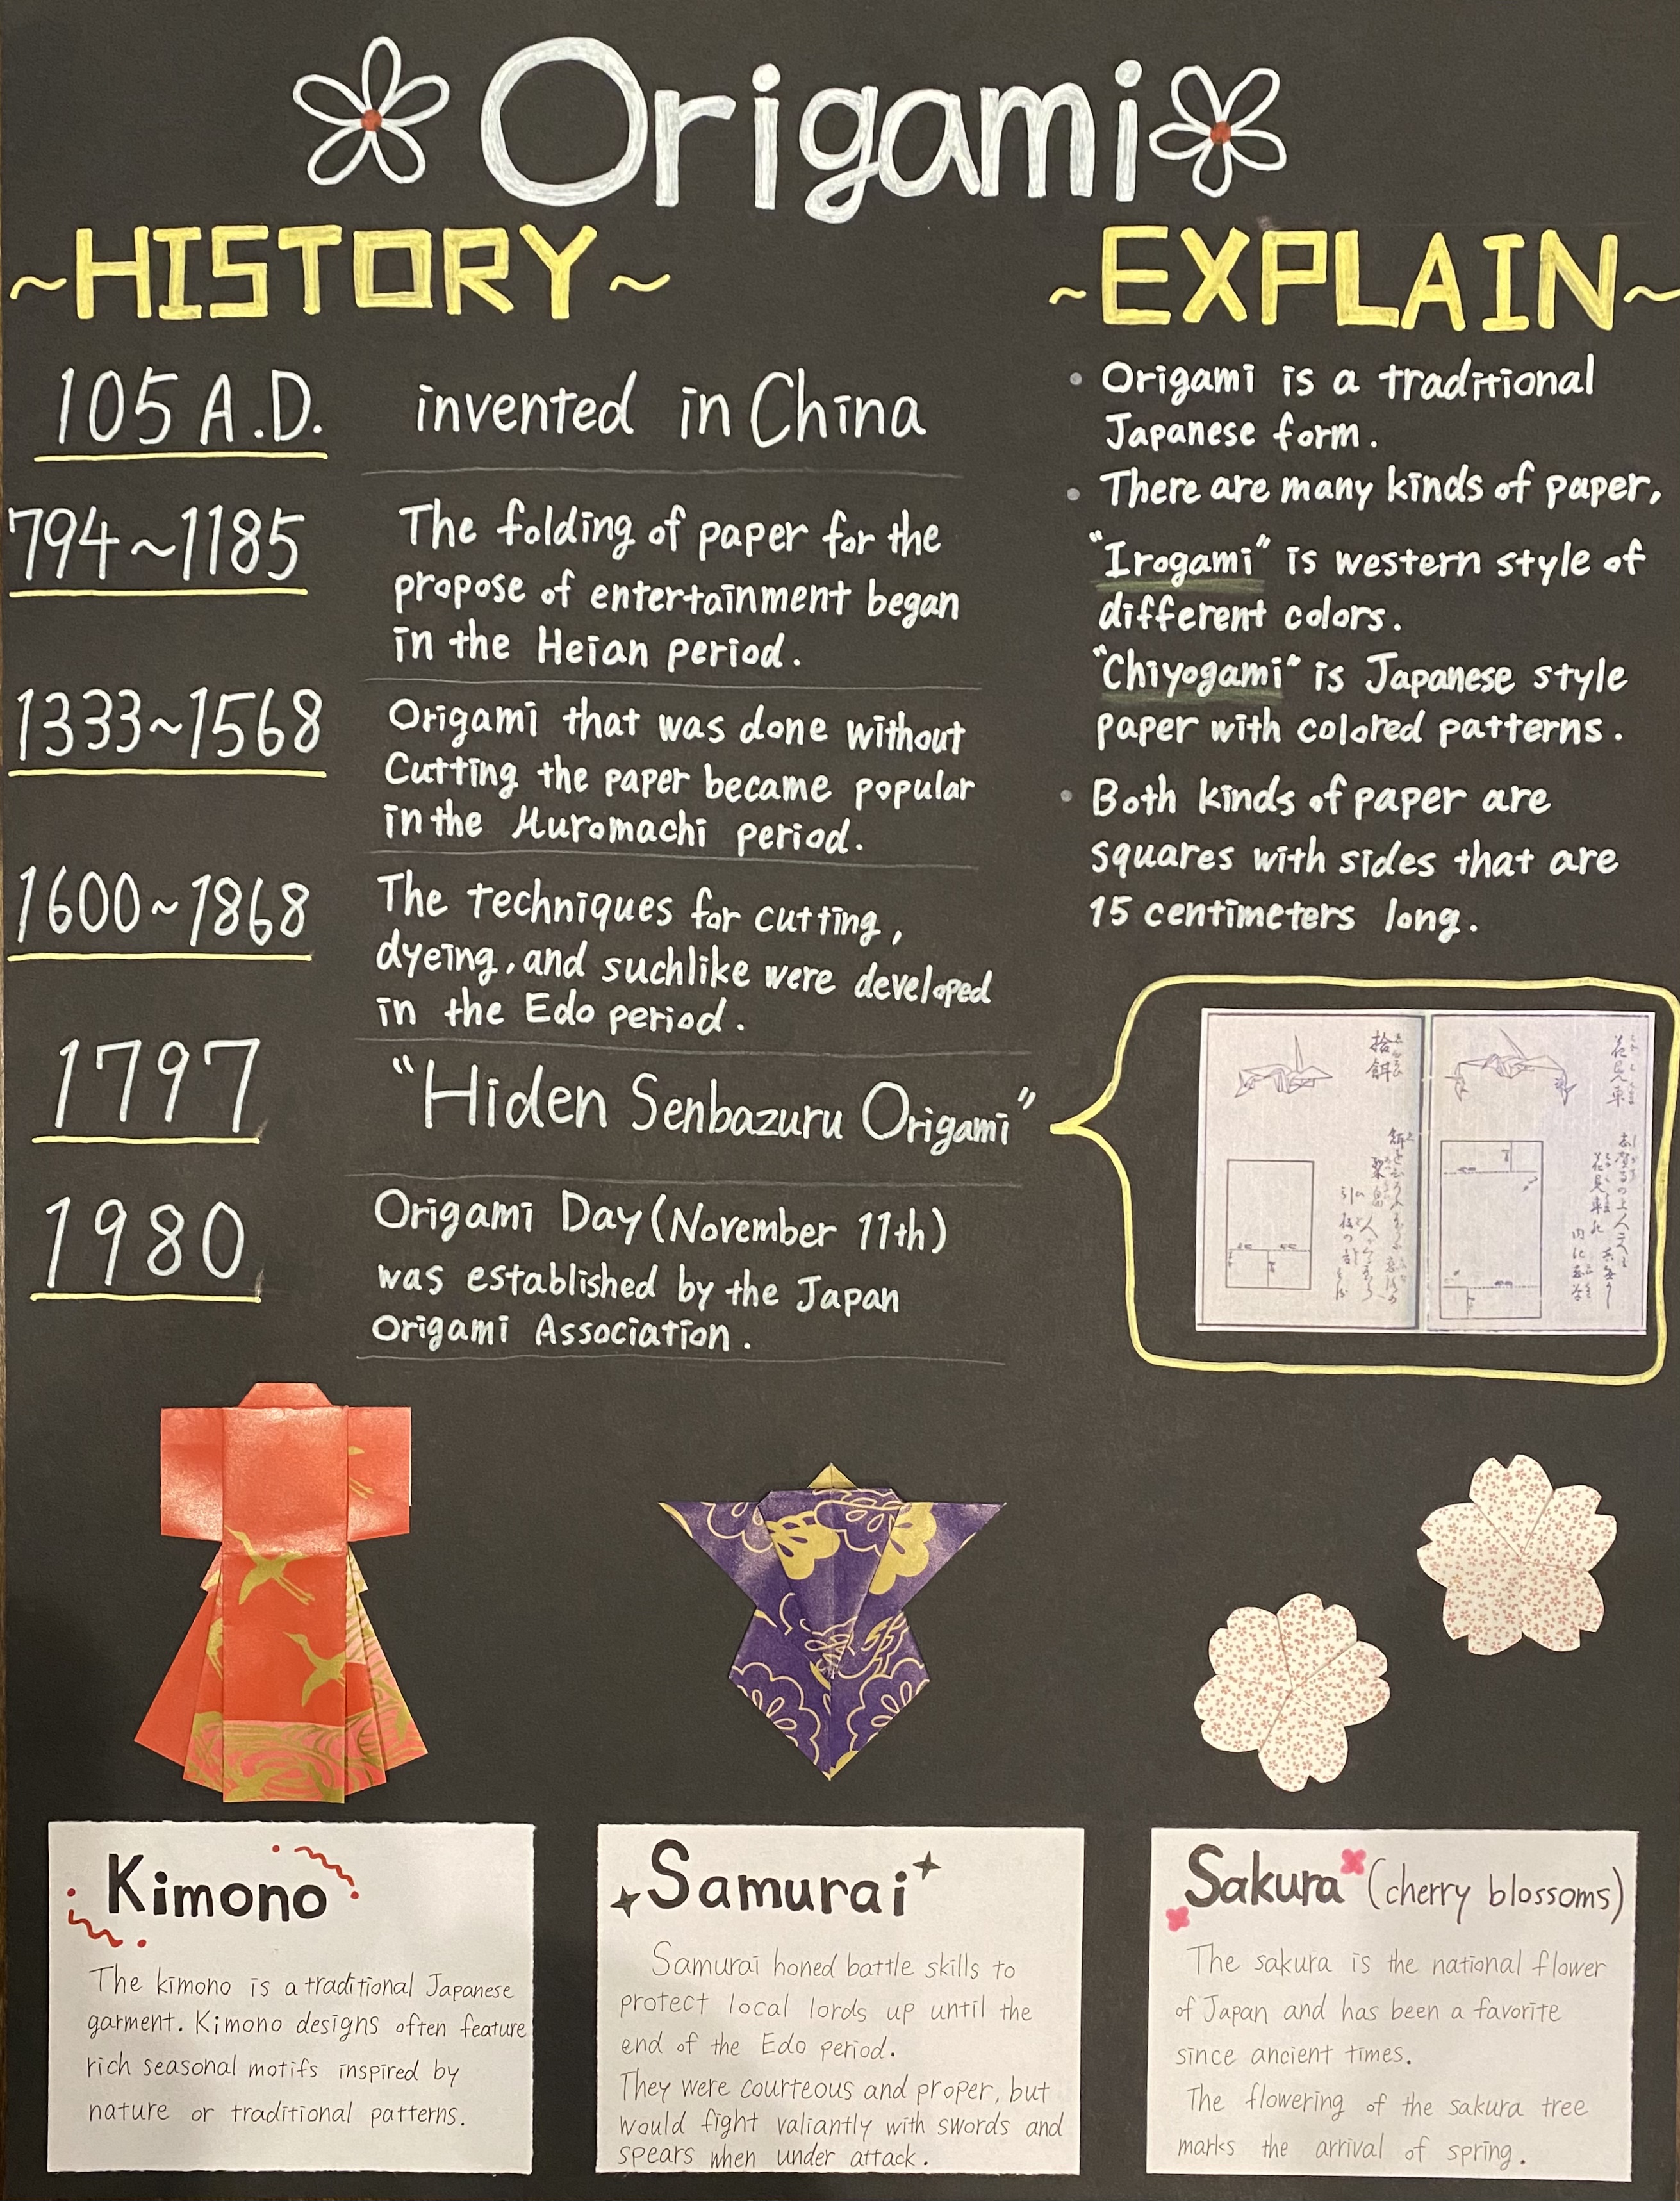 Origami
~HISTORY~
105 A.D.
invented in China
794~1185
The folding of paper for the
propose of entertainment began
in the Heian period.
1333~1568
Origami that was done without
Cutting the paper became popular
in the Muromachi period.
1600~1868
The techniques for cutting,
dyeing, and suchlike were developed
in the Edo period.
1797
"Hiden Senbazuru Origami"
1980
Origami Day (November 11th)
was established by the Japan
Origami Association.
~EXPLAIN~
• Origami is a traditional
Japanese form.
• There are many kinds of paper,
"Irogami" is western style of
different colors.
"Chiyogami" is Japanese style
paper with colored patterns.
• Both kinds of paper are
squares with sides that are
15 centimeters long.
拾餌
花見車
Kimono
The kimono is a traditional Japanese
garment. Kimono designs often feature
rich seasonal motifs inspired by
nature or traditional patterns.
Samurai
Samurai honed battle skills to
protect local lords up until the
end of the Edo period.
They were courteous and proper, but
would fight valiantly with swords and
spears when under attack.
Sakura (cherry blossoms)
The sakura is the national flower
of Japan and has been a favorite
since ancient times.
The flowering of the sakura tree
marks the arrival of spring.